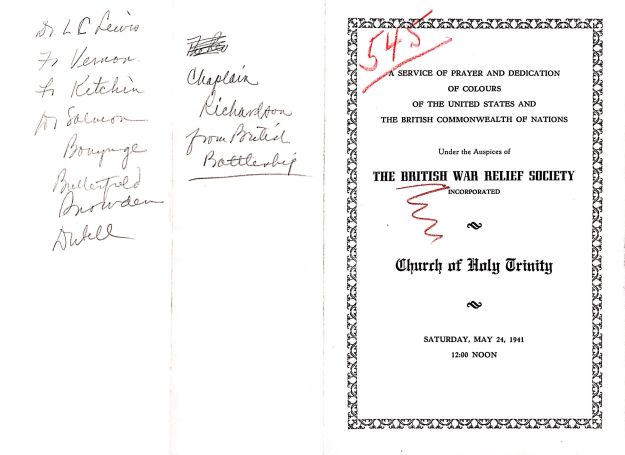 Dr L C Lewis
Fr Vernon
Fr Kitchin
Dr Salmon
Bonynge
Butterfield
Snowden
Chaplain
Richardson
from British
Battleship
545
A SERVICE OF PRAYER AND DEDICATION
OF COLOURS
OF THE UNITED STATES AND
THE BRITISH COMMONWEALTH OF NATIONS
Under the Auspices of
THE BRITISH WAR RELIEF SOCIETY
INCORPORATED
Church of Holy Trinity
SATURDAY, MAY 24, 1941
12:00 NOON